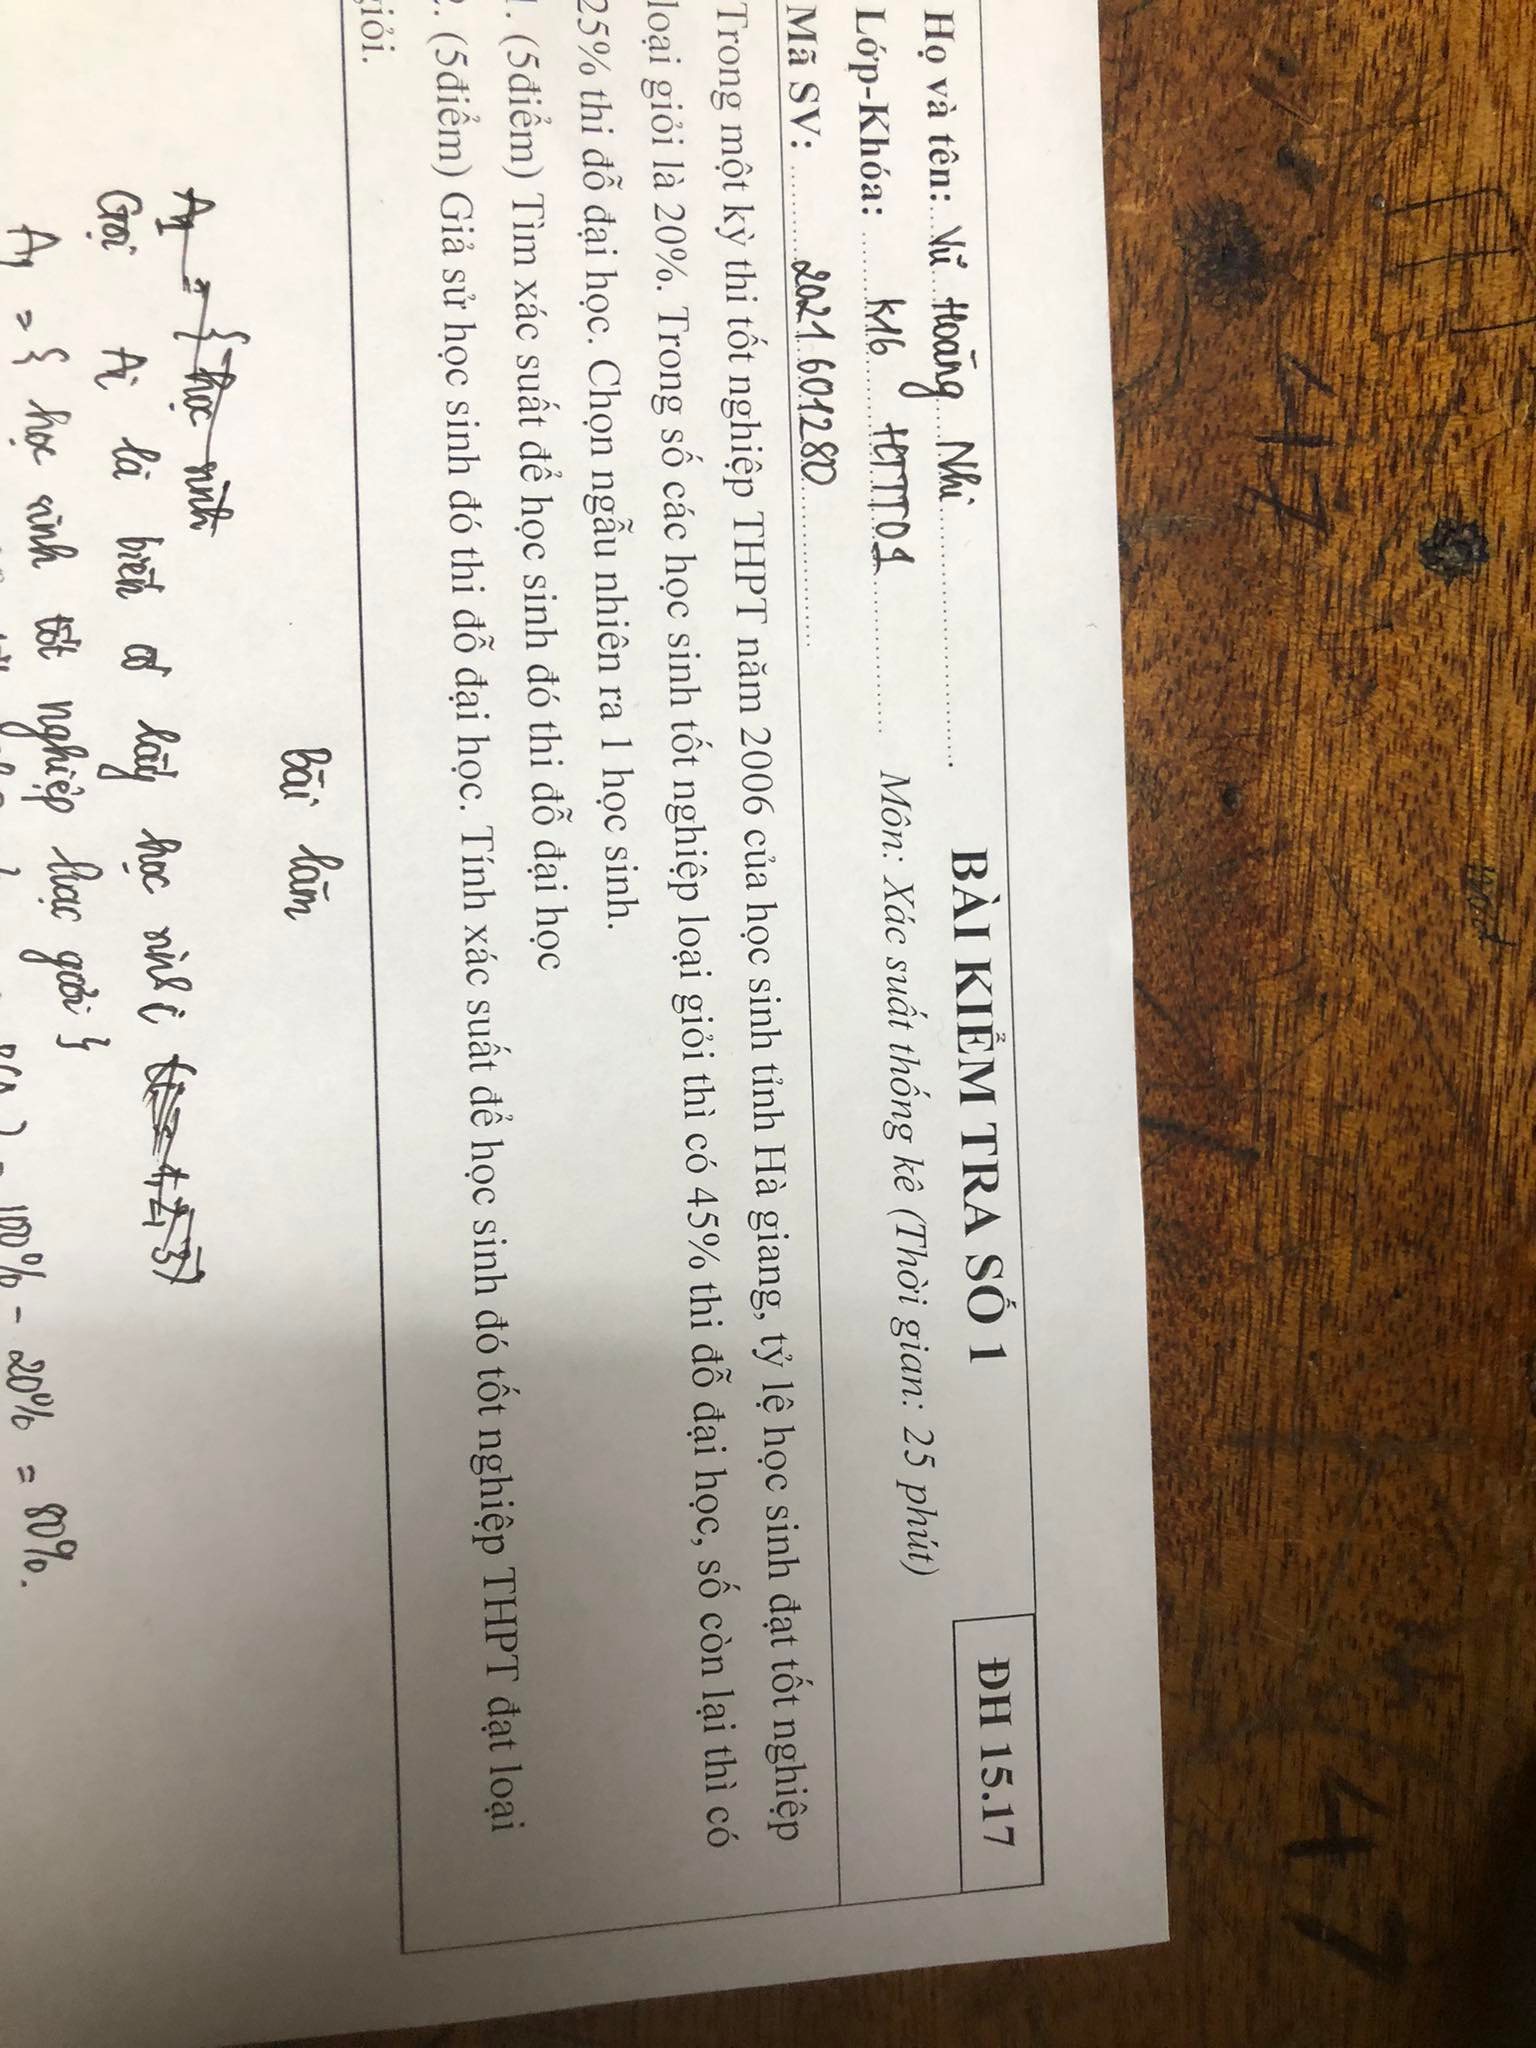 BÀI KIỂM TRA SỐ 1
ĐH 15.17
Họ và tên: Vũ Hoàng Nhi
Lớp-Khóa: K16 HTTT01 Môn: Xác suất thống kê (Thời gian: 25 phút)
Mã SV: 2021601280
Trong một kỳ thi tốt nghiệp THPT năm 2006 của học sinh tỉnh Hà giang, tỷ lệ học sinh đạt tốt nghiệp
loại giỏi là 20%. Trong số các học sinh tốt nghiệp loại giỏi thì có 45% thi đỗ đại học, số còn lại thì có
25% thi đỗ đại học. Chọn ngẫu nhiên ra 1 học sinh.
1. (5điểm) Tìm xác suất để học sinh đó thi đỗ đại học
2. (5điểm) Giả sử học sinh đó thi đỗ đại học. Tính xác suất để học sinh đó tốt nghiệp THPT đạt loại
giỏi.
bài làm
A1 = { học sinh
Gọi Ai là biến cố lấy học sinh i
A1 = { học sinh tốt nghiệp loại giỏi }
= 100% - 20% = 80%.